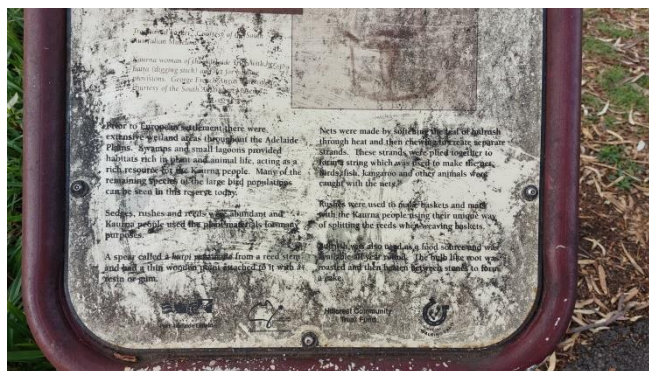 Courtesy of the South
Australian
Kaurna woman of the Adelaide
(digging stick) and for
provisions. George French Angas
Courtesy of the South Australian
Prior to European settlement there were
extensive wetland areas throughout the Adelaide
Plains. Swamps and small lagoons provided
habitats rich in plant and animal life, acting as a
rich resource for the Kaurna people. Many of the
remaining species of the large bird populations
can be seen in this reserve today.
Sedges, rushes and reeds were abundant and
Kaurna people used the plant materials for many
purposes.
A spear called a kaipi was made from a reed stem
and had a thin wooden point attached to it with
resin or gum.
Nets were made by softening the leaf of bulrush
through heat and then chewing to create separate
strands. These strands were plied together to
form a string which was used to make the net.
Birds, fish, kangaroo and other animals were
caught with the nets.
Rushes were used to make baskets and mats
with the Kaurna people using their unique way
of splitting the reeds when weaving baskets.
Bulrush was also used as a food source and was
available all year round. The bulb like root was
roasted and then beaten between stones to form
a cake.
Port Adelaide Enfield
Hillcrest Community
Trust Fund